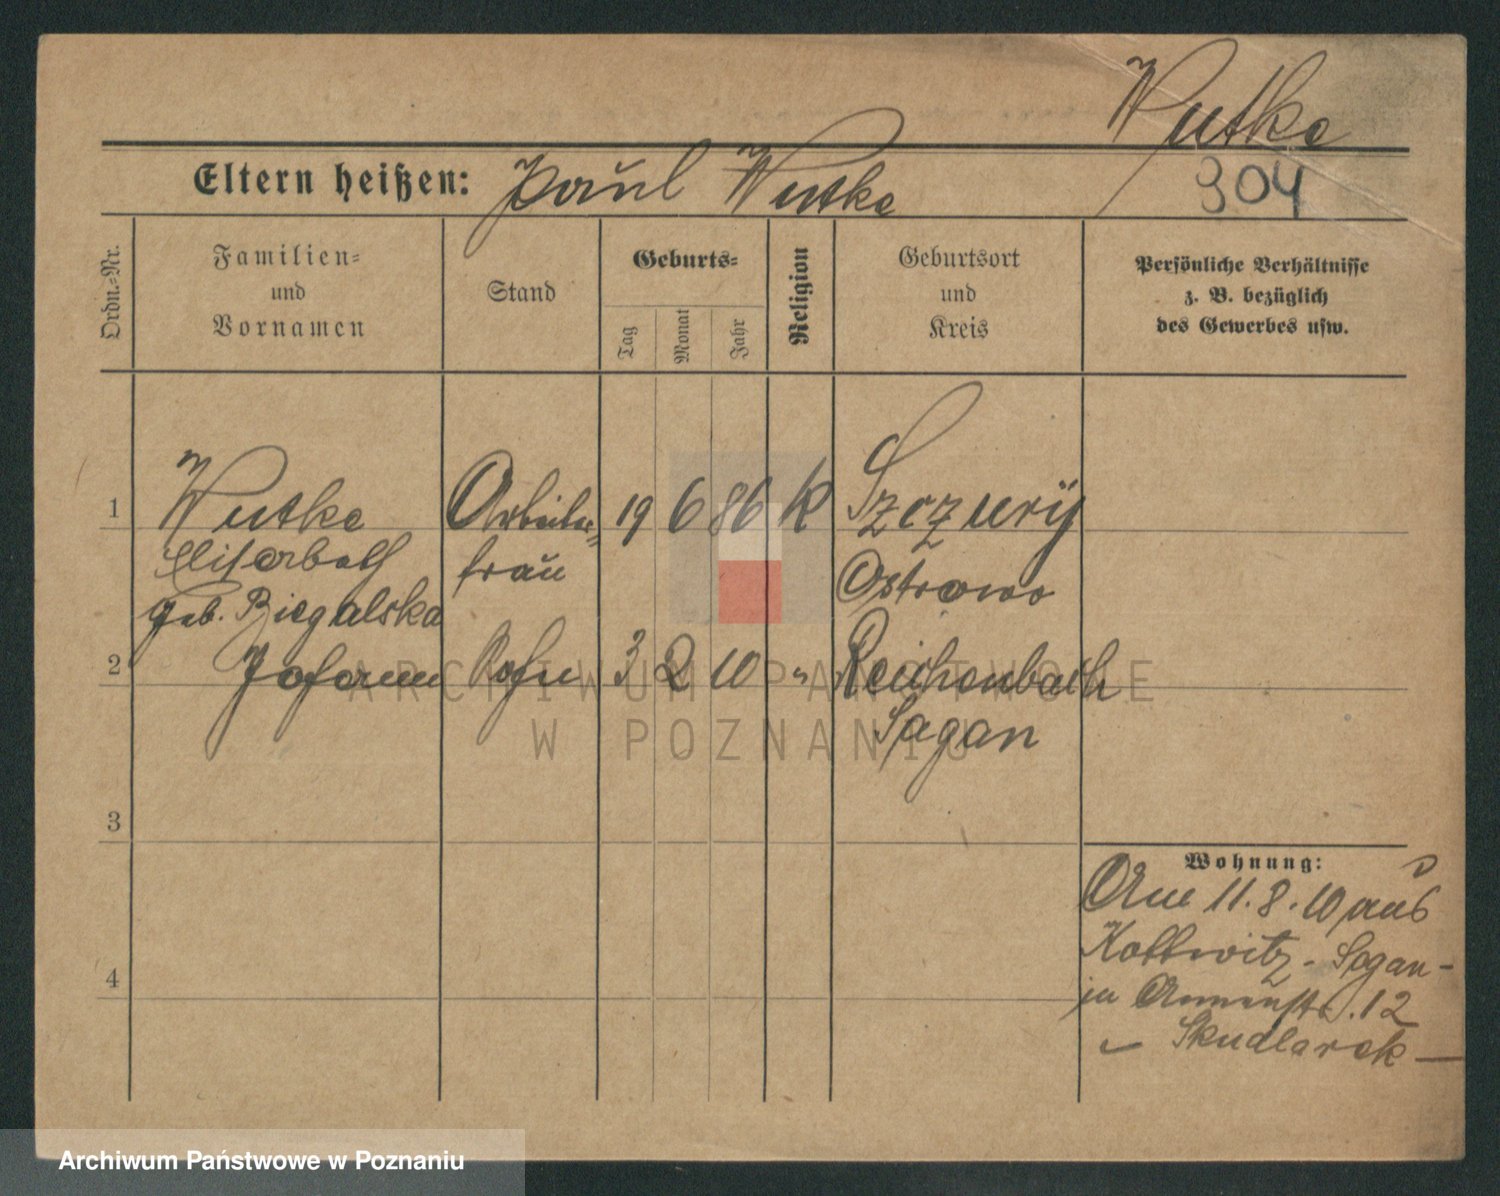 Wutke
304
Eltern heißen: Paul Wutke
Ordn.=Nr.
Familien=
und
Vornamen
Stand
Geburts=
Tag
Monat
Jahr
Religion
Geburtsort
und
Kreis
Persönliche Verhältnisse
z. B. bezüglich
des Gewerbes usw.
1 Wutke Arbeiter= 19 6 86 k Szczury
Elisabeth frau Ostrowo
geb. Biegalska
2 Johann Sohn 3 2 10 " Reichenbach
Sagan
3
4
Wohnung:
Am 11.8.10 aus
Kottwitz - Sagan -
in Annenstr. 12
Skudlarek
ARCHIWUM PAŃSTWOWE
W POZNANIU
Archiwum Państwowe w Poznaniu